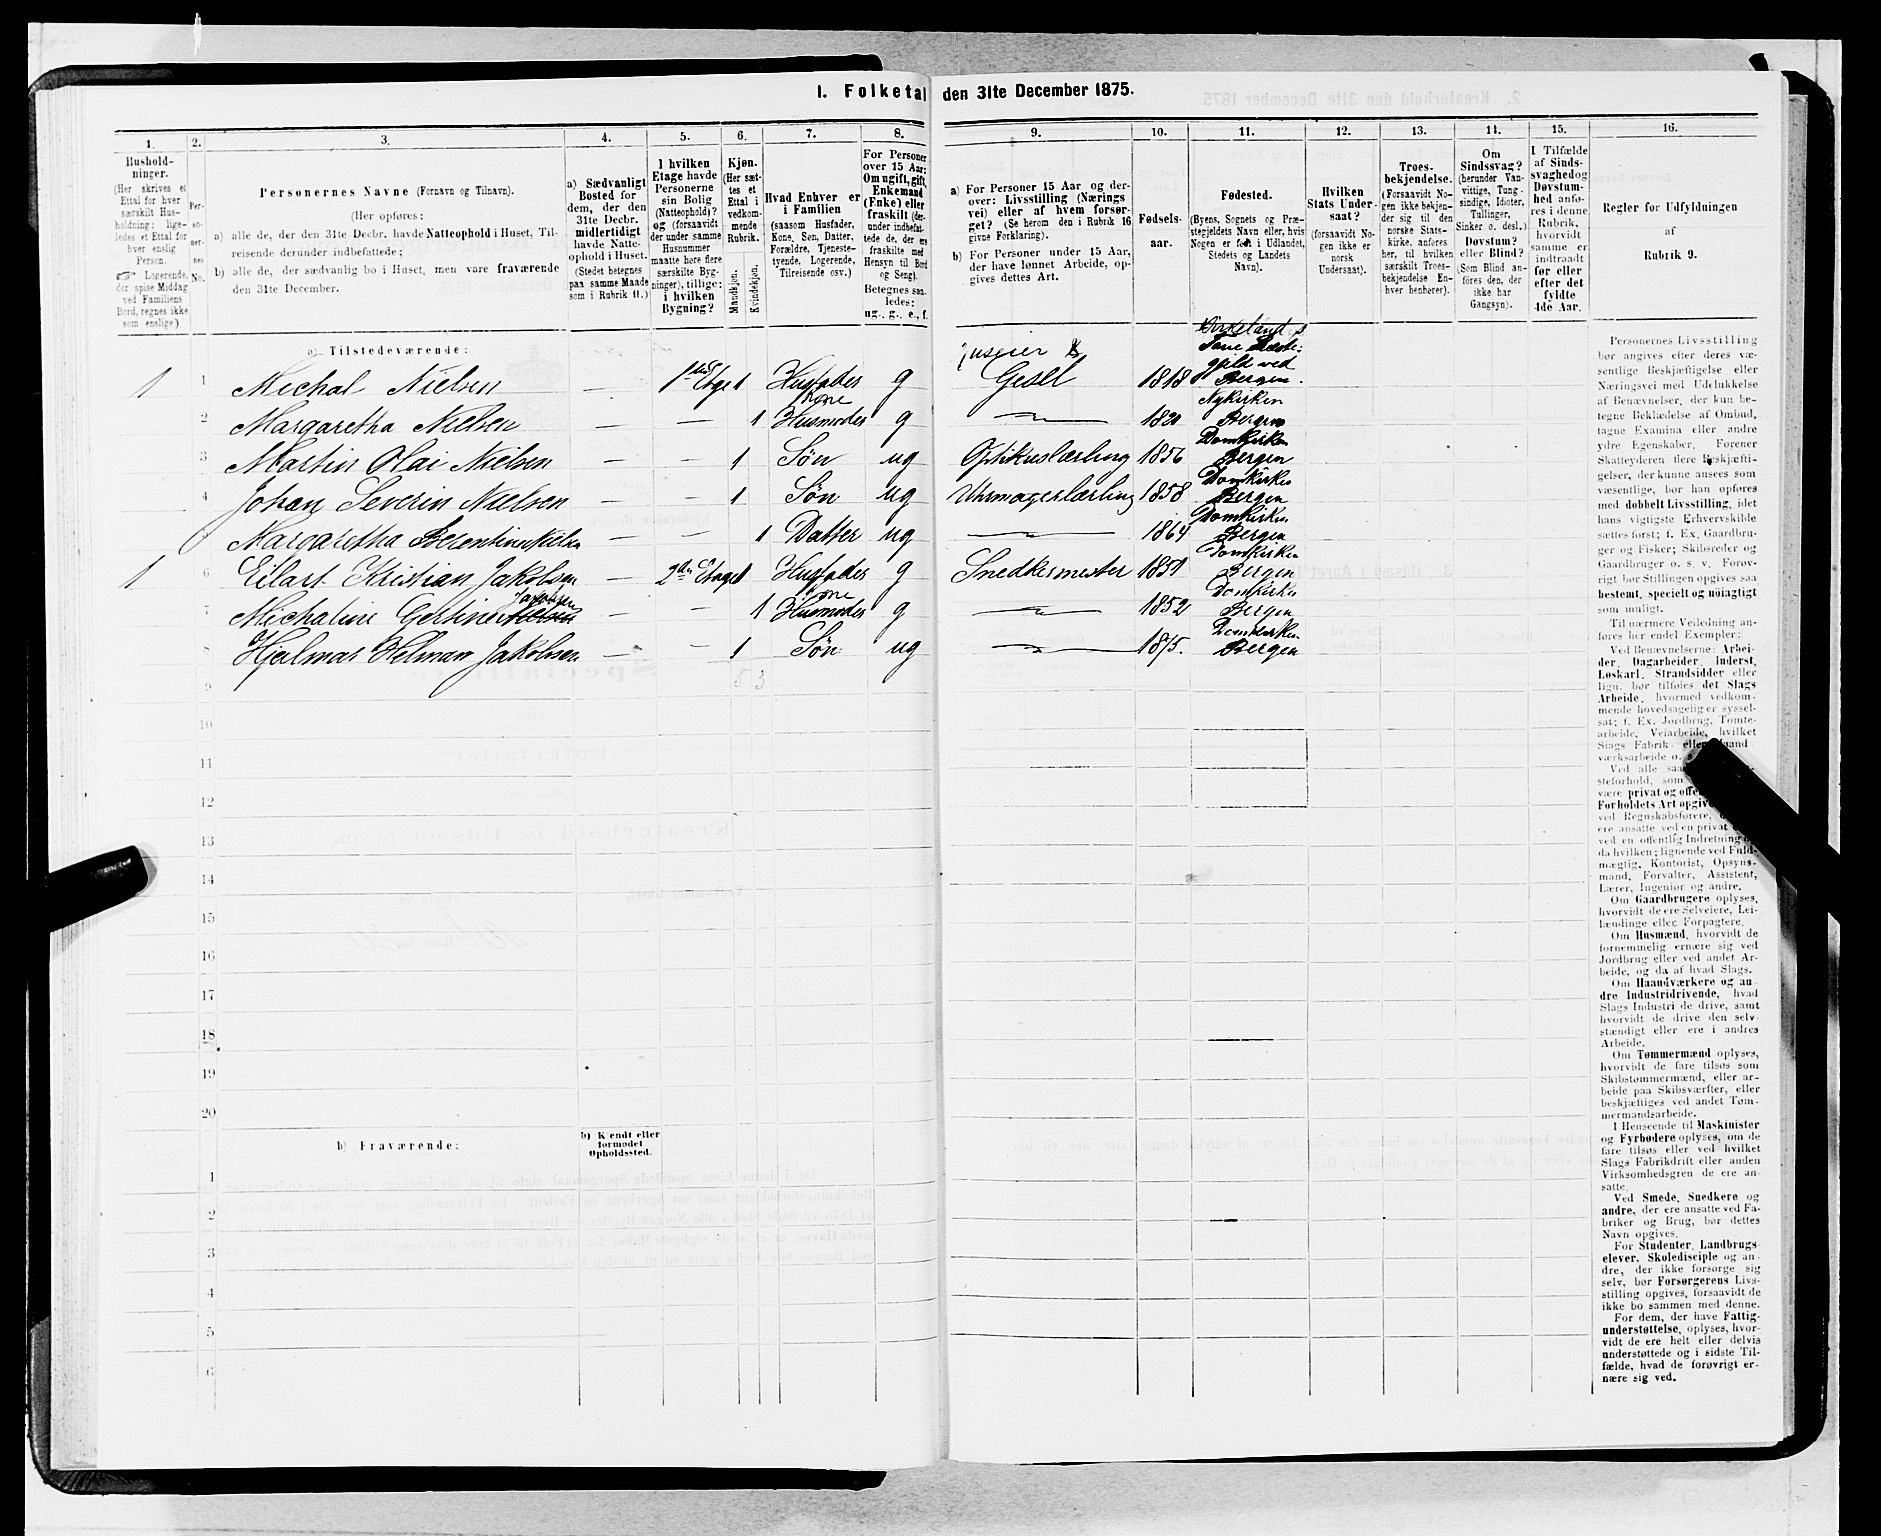 1. Folketal den 31te December 1875.
1.
Hushold-
ninger.
(Her skrives et
Ettal for hver
særskilt Hus-
holdning; lige-
ledes et Ettal for
hver enslig
Person.
☞ Logerende,
der spise Middag
ved Familiens
Bord, regnes ikke
som enslige).
2.
Per-
so-
ner-
nes
No.
3.
Personernes Navne (Fornavn og Tilnavn).
(Her opføres:
a) alle de, der den 31te Decbr. havde Natteophold i Huset, Til-
reisende derunder indbefattede;
b) alle de, der sædvanlig bo i Huset, men vare fraværende
den 31te December.
4.
a) Sædvanligt
Bosted for
dem, der den
31te Decbr.
midlertidigt
havde Natte-
ophold i Huset.
(Stedet betegnes
paa samme Maade
som i Rubrik 11.)
5.
I hvilken
Etage havde
Personerne
sin Bolig
(Natteophold)?
og (forsaavidt
der under samme
Husnummer
maatte høre flere
særskilte Byg-
ninger), tillige:
i hvilken
Bygning?
6.
Kjøn.
(Her sæt-
tes et
Ettal i
vedkom-
mende
Rubrik.
Mandkjøn.
Kvindekjøn.
7.
Hvad Enhver er
i Familien
(saasom Husfader,
Kone, Søn, Datter,
Forældre, Tjeneste-
tyende, Logerende,
Tilreisende osv.)
8.
For Personer
over 15 Aar:
Om ugift, gift,
Enkemand
(Enke) eller
fraskilt (der-
under indbefat-
tede de, der ere
fraskilte med
Hensyn til Bord
og Seng).
Betegnes saa-
ledes:
ug., g., e., f.
9.
a) For Personer 15 Aar og der-
over: Livsstilling (Nærings
vei) eller af hvem forsør-
get? (Se herom den i Rubrik 16
givne Forklaring).
b) For Personer under 15 Aar,
der have lønnet Arbeide, op-
gives dettes Art.
10.
Fødsels-
aar.
11.
Fødested.
(Byens, Sognets og Præ-
stegjeldets Navn eller, hvis
Nogen er født i Udlandet,
Stedets og Landets
Navn).
12.
Hvilken
Stats Under-
saat?
(forsaavidt No-
gen ikke er
norsk
Undersaat).
13.
Troes-
bekjendelse.
(Forsaavidt No-
gen ikke bekjen-
der sig til den
norske Stats-
kirke, anføres
her, til hvilken
særskilt Troes-
bekjendelse En-
hver henhører).
14.
Om
Sindssvag?
(herunder Van-
vittige, Tung-
sindige, Idioter,
Tullinger,
Sinker o. desl.)
Døvstum?
eller Blind?
(Som Blind an-
føres den, der
ikke har
Gangsyn).
15.
I Tilfælde
af Sinds-
svaghed og
Døvstum-
hed anfø-
res i denne
Rubrik,
hvorvidt
samme er
indtraadt
før eller
efter det
fyldte
4de Aar.
16.
Regler for Udfyldningen
af
Rubrik 9.
a) Tilstedeværende:
1 1 Michal Nielsen — 1ste Etage 1 Husfader g Gesel 1818 Birkeland s Fane Præste- gjæld ved Bergen.
2 Margaretha Nielsen — — 1 Husmoder Kone g — Nykirken Bergen
3 Martin Olai Nielsen — — 1 Søn ug Optikuslærling 1856 Domkirken Bergen
4 Johan Severin Nielsen — — 1 Søn ug Uhrmagerlærling 1858 Domkirken Bergen
Margaretha Berentine Nielsen — — 1 Datter ug — 1864 Domkirken Bergen
1 6 Eilart Kristian Jakobsen — 2den Etage 1 Husfader g Snedkermester Domkirken Bergen
7 Michaline Gertine Nielsen Jakobsen — — 1 Husmoder Kone g — 1852 Domkirken Bergen
Hjalmar Jakobsen — — 1 Søn ug — 1875. Domkirken Bergen
9 5 3
10
11
12
13
14
15
16
17
18
19
20
b) Fraværende:
b) Kjendt eller
formodet
Opholdssted.
1
2
3
4
5
6
Personernes Livsstilling
bør angives efter deres væ-
sentlige Beskjæftigelse eller
Næringsvei med Udelukkelse
af Benævnelser, der kun be-
tegne Beklædelse af Ombud,
tagne Examina eller andre
ydre Egenskaber. Forener
Skatteyderen flere Beskjæfti-
gelser, der kunne ansees som
væsentlige, bør han opføres
med dobbelt Livsstilling, idet
hans vigtigste Erhvervskilde
sættes først; f. Ex. Gaardbru-
ger og Fisker; Skibsreder og
Gaardbruger o. s. v. Forøv-
rigt bør Stillingen opgives saa
bestemt, specielt og nøiagtigt
som muligt.
Til nærmere Veiledning an-
føres her endel Exempler:
Ved Benævnelserne: Arbei-
der, Dagarbeider, Inderst,
Løskarl, Strandsidder eller
lign. bør tilføies det Slags
Arbeide, hvormed vedkom-
mende hovedsagelig er syssel-
sat; f. Ex. Jordbrug, Tomte-
arbeide, Veiarbeide, hvilket
Slags Fabrik- eller Haand-
værksarbeide o.
Ved alle saa
steforhold, som
være privat og offe
Forholdets Art opgiv
ved Regnskabsførere,
ere ansatte ved en privat
ved en offentlig Indretning
da hvilken; lignende ved Fuld-
mægtig, Kontorist, Opsyns-
mand, Forvalter, Assistent,
Lærer, Ingeniør og andre.
Om Gaardbrugere oplyses,
hvorvidt de ere Selveiere, Lei-
lændinge eller Forpagtere.
Om Husmænd, hvorvidt de
fornemmelig ernære sig ved
Jordbrug eller ved andet Ar-
beide, og da af hvad Slags.
Om Haandværkere og an-
dre Industridrivende, hvad
Slags Industri de drive, samt
hvorvidt de drive den selv-
stændigt eller ere i andres
Arbeide.
Om Tømmermænd oplyses,
hvorvidt de fare tilsøs som
Skibstømmermænd, eller ar-
beide paa Skibsværfter, eller
beskjæftiges ved andet Tøm-
mermandsarbeide.
I Henseende til Maskinister
og Fyrbødere oplyses, om de
fare tilsøs eller ved hvilket
Slags Fabrikdrift eller anden
Virksomhedsgren de ere an-
satte.
Ved Smede, Snedkere og
andre, der ere ansatte ved Fa-
briker og Brug, bør dettes
Navn opgives.
For Studenter, Landbrugs-
elever, Skoledisciple og an-
dre, der ikke forsørge sig
selv, bør Forsørgerens Livs-
stilling opgives, forsaavidt de
ikke bo sammen med denne.
For dem, der have Fattig-
understøttelse, oplyses, hvor-
vidt de ere helt eller delvis
understøttede og i sidste Til-
fælde, hvad de forøvrigt er-
nære sig ved.